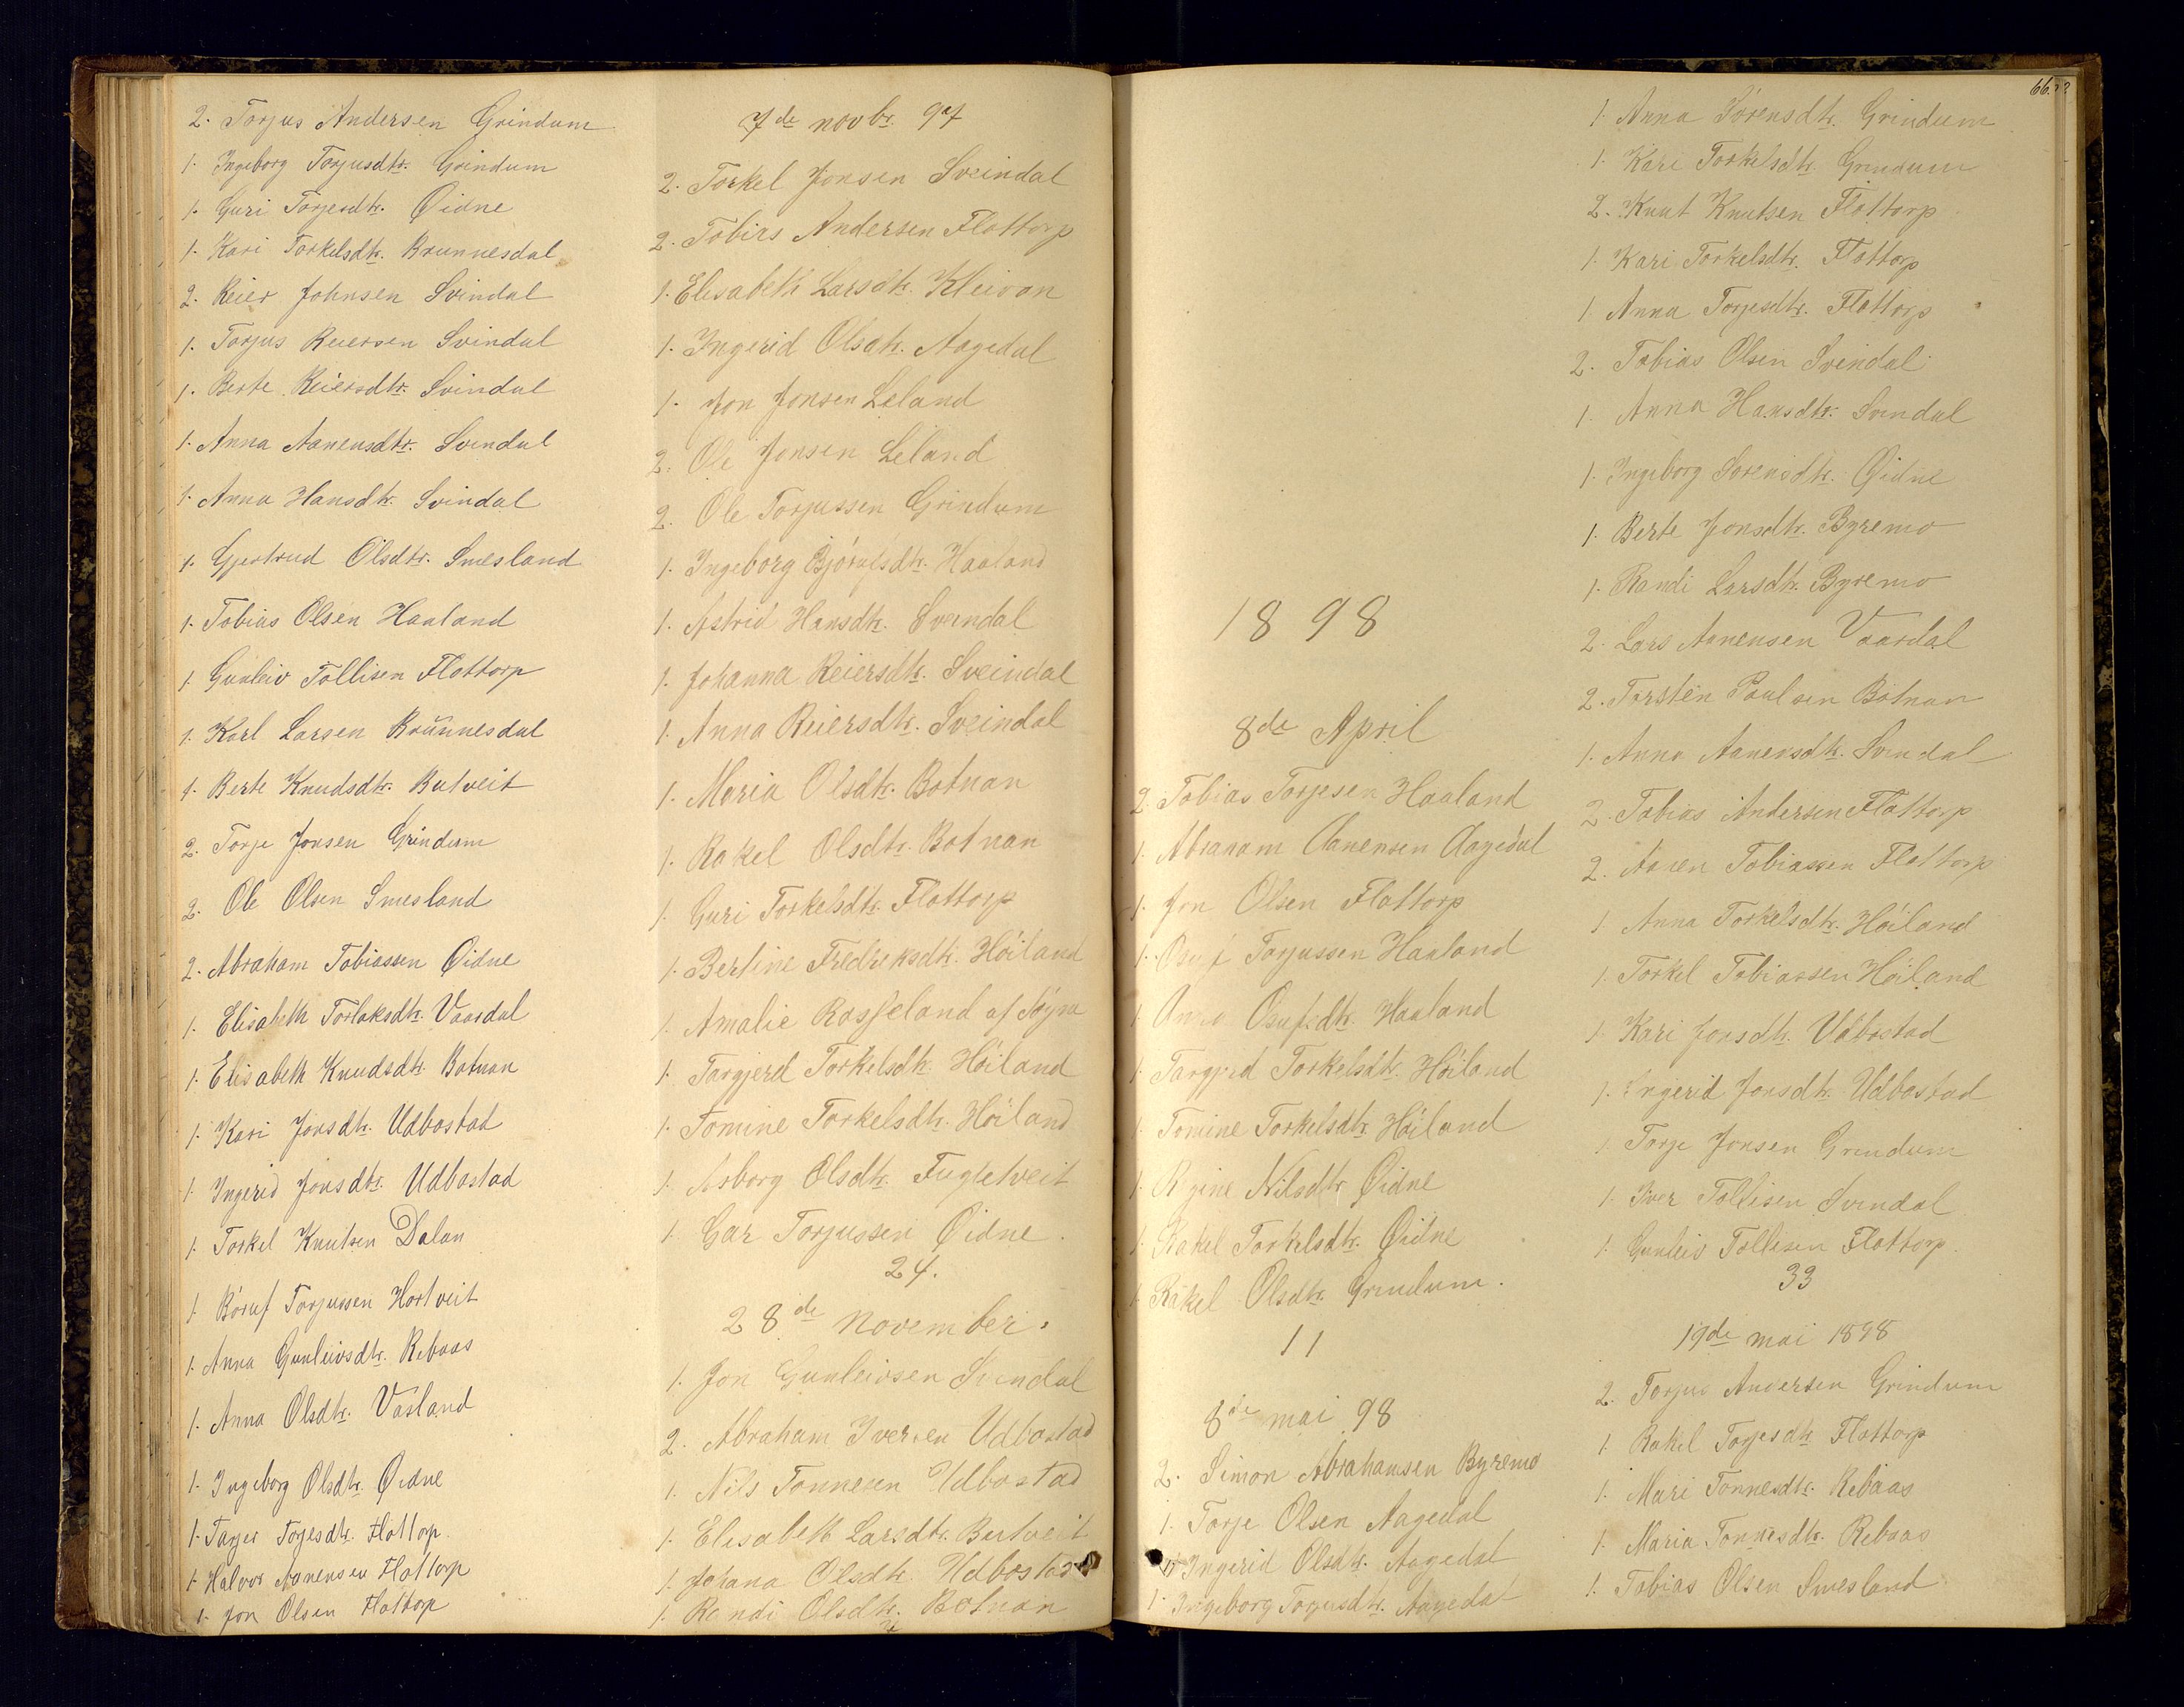 2. Torjus Andersen Grindum
1. Ingeborg Torjusdtr. Grindum
1. Guri Torjesdtr. Øidne
1. Kari Torkelsdtr. Brunnesdal
2. Reier Johnsen Svindal
1. Torjus Reiersen Svindal
1. Berte Reiersdtr. Svindal
1. Anna Aanensdtr. Svindal
1. Anna Hansdtr. Svindal
1. Gjertrud Olsdtr. Smesland
1. Tobias Olsen Haaland
1. Gunleiv Tollisen Flottorp
1. Karl Larsen Brŭnnesdal
1. Berte Knudsdtr. Butveit
2. Torje Jonsen Grindum
2. Ole Olsen Smesland
2. Abraham Tobiassen Øidne
1. Elisabeth Torlaksdtr. Vaardal
1. Elisabeth Knudsdtr. Botnan
1. Kari Jonsdtr. Udbostad
1. Ingerid Jonsdtr. Udbostad
1. Torkel Knutsen Dalan
1. Röruf Torjussen Hortveit
1. Anna Gunleivsdtr. Rebaas
1. Anna Olsdtr. Våsland
1. Ingeborg Olsdtr. Øidne
1. Tarjer Torjesdtr. Flottorp.
1. Halvor Aanensen Flottorp
1. Jon Olsen Flottorp
7de novbr. 97
2. Torkel Jonsen Sveindal
2. Tobias Andersen Flottorp
1. Elisabeth Larsdtr. Kleivan
1. Ingerid Olsdtr. Aagedal
1. Jon Jonsen Leland
2. Ole Jonsen Leland
2. Ole Torjussen Grindum
1. Ingeborg Bjórufsdtr. Haaland
1. Astrid Hansdtr. Sveindal
1. Johanna Reiersdtr. Sveindal
1. Anna Reiersdtr. Sveindal
1. Maria Olsdtr. Botnan
1. Rakel Olsdtr. Botnan
1. Guri Torkelsdtr. Flottorp
1. Bertine Fredreksdtr. Höiland
1. Amalie Rosseland af Sögne
1. Targjerd Torkelsdtr. Höiland
1. Tomine Torkelsdtr. Höiland
1. Asborg Olsdtr. Fugletveit
1. Gar Torjussen Øidne.
24.
28de november.
1. Jon Gunleivsen Svindal
2. Abraham Iversen Udbostad
1. Nils Tonnesen Udbostad
1. Elisabeth Larsdtr. Butveit
1. Johana Olsdtr. Udbostad
1. Randi Olsdtr. Botnan
1898
8de April
2. Tobias Torjesen Haaland
1. Abraham Aanensen Aagedal
1. Jon Olsen Flottorp
1. Osuf Torjussen Haaland
1. Anna Osufsdtr. Haaland
1. Targjerd Torkelsdtr. Höiland
1. Tomine Torkelsdtr. Höiland
1. Regine Nilsdtr Øidne
1. Rakel Torkelsdtr. Øidne
1. Rakel Olsdtr. Grindum.
11
8de mai 98
2. Simon Abrahamsen Byremo
1. Torje Olsen Aagedal
1. Ingerid Olsdtr. Aagedal
1. Ingeborg Torjusdtr. Aagedal
66.
1. Anna Sörensdtr. Grindum
1. Kari Torkelsdtr. Grindum
2. Knut Knutsen Flottorp
1. Kari Torkelsdtr. Flottorp
1. Anna Torjesdtr. Flottorp
2. Tobias Olsen Svindal
1. Anna Hansdtr. Svindal
1. Ingeborg Sörensdtr. Øidne
1. Berte Jonsdtr. Byremo
1. Randi Larsdtr. Byremo
2. Lars Aanensen Vaardal
2. Torsten Paulsen Botnan
1. Anna Aanensdtr. Svindal
2. Tobias Andersen Flottorp
2. Aanen Tobiassen Flottorp
1. Anna Torkelsdtr. Höiland
1. Torkel Tobiassen Höiland
1. Kari Jonsdtr. Udbostad
1. Ingerid Jonsdtr. Udbostad
1. Torje Jonsen Grindum
1. Iver Tollisen Svindal
1. Gunleiv Tollisen Flottorp.
33
19de mai 1898
2. Torjus Andersen Grindum
1. Rakel Torjesdtr. Flottorp
1. Mari Tonnesdtr. Rebaas
1. Maria Tonnesdtr. Rebaas
1. Tobias Olsen Smesland